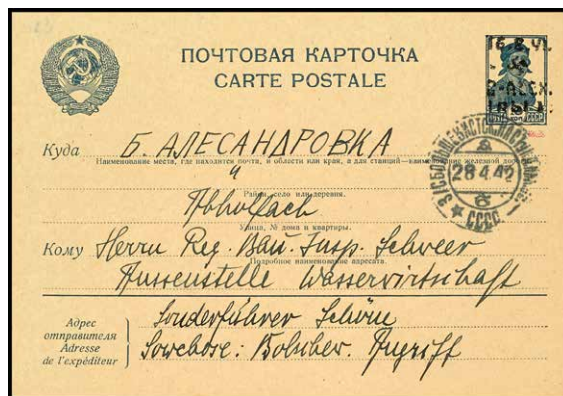 ПОЧТОВАЯ КАРТОЧКА
CARTE POSTALE
16.8.41.
Б-ALEX.
Куда Б. АЛЕСАНДРОВКА
Наименование места, где находится почта, и области или края, а для станций—наименование железной дороги
Район, село или деревня.
Abholfach
Улица, № дома и квартиры.
Кому Herrn Reg. Bau. Insp. Schweer
Подробное наименование адресата.
Aussenstelle Wasserwirtschaft
Адрес отправителя
Adresse de l'expéditeur
Sonderführer Schön
Angriff
28.4.42
СССР